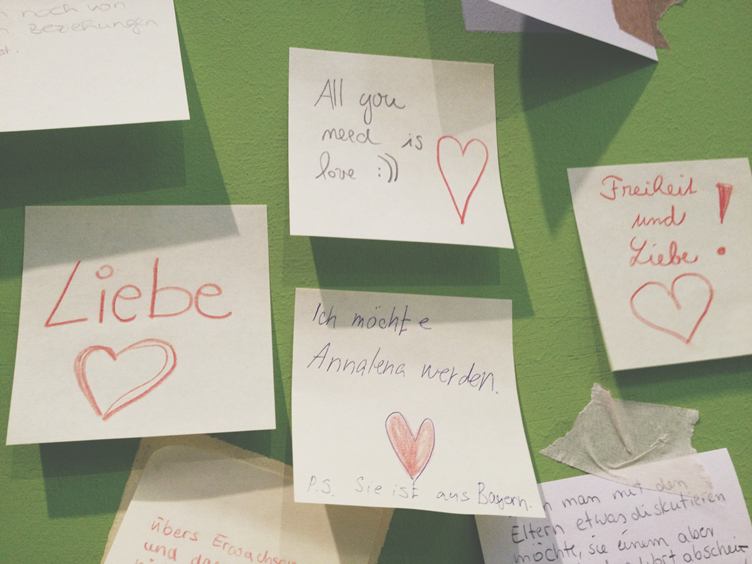 noch von
Beziehungen
All you
need is
love :))
Freiheit
und
Liebe!
Liebe
Ich möchte
Annalena werden.
P.S. Sie ist aus Bayern.
übers Erwachsen
und das
man mit den
Eltern etwas diskutieren
möchte, sie einem aber